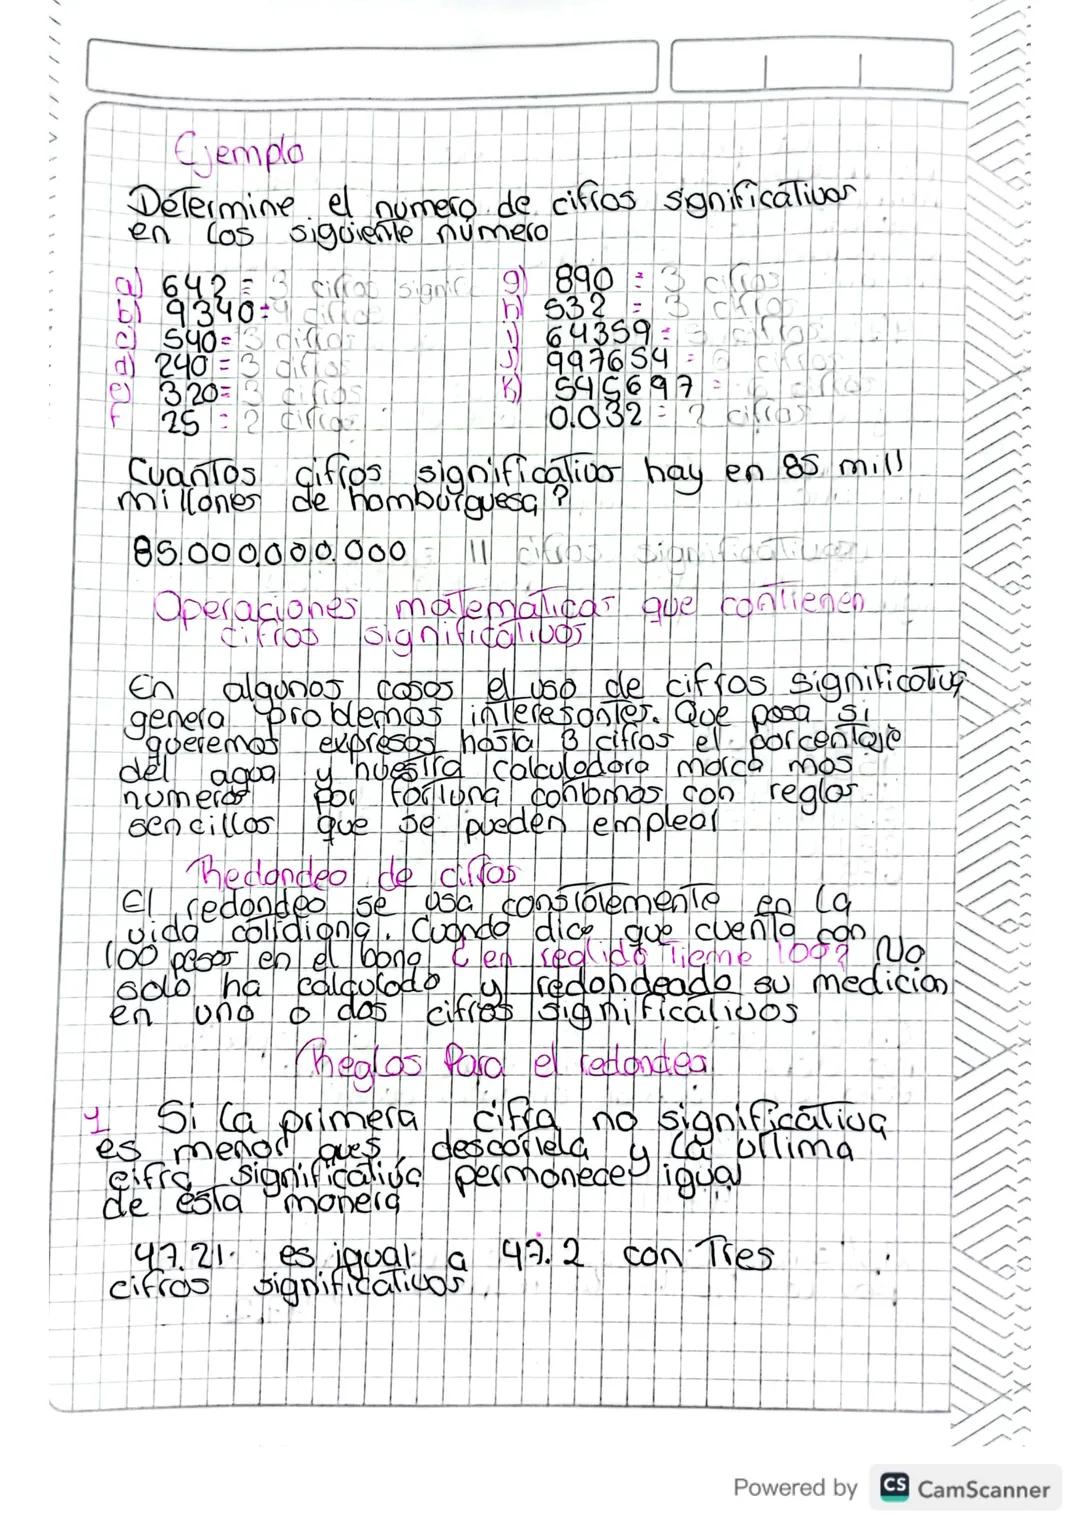 Ejemplo
Determine el numero de cifras significativas
en los siguiente número
a) 642 = 3 cifras signifc
b) 9340 = 4 cifras
c) 540 = 3 cifras
d) 240 = 3 cifras
e) 320 = 3 cifras
f 25 = 2 cifras
g) 890 = 3 cifras
h) 532 = 3 cifra
i) 64359 = 5 cifras
j) 997654 = 6 cifras
K) 545697 = 6 cifras
0.032 = 2 cifras
Cuantos cifras significativa hay en 85 mill
millones de hamburguesa?
85.000.000.000 = 11 cifras significativas
Operaciones matemáticas que contienen
cifras significativas
En algunos casos el uso de cifras significativa
genera problemas interesantes. Que pasa si
queremos expresas hasta 3 cifras el porcentaje
del agua y nuestra calculadora marca mas
numeros por fortuna conbmas con reglas
sencillas que se pueden emplear
Redondeo de cifras
El redondeo se usa constatemente en la
vida cotidiana. Cuando dice que cuenta con
100 pesos en el bano ¿en realida tieme 100? No
solo ha calculado y redondeado su medicion
en una o dos cifras significativas
Reglas Para el redondeo
1 Si la primera cifra no significativa
es menor ques descartela y la ultima
cifra significativa permanece igual
de esta manera
47.21. es igual a 47.2 con Tres
cifras significativas.
Powered by CS CamScanner